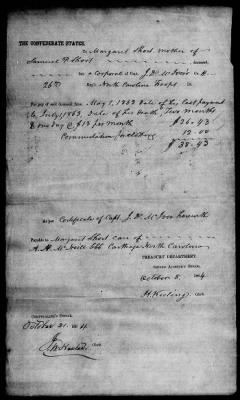 THE CONFEDERATE STATES,
To Margaret Short mother of
Samuel P. Short, deceased,
for a Corporal Capt. J. D. McIver Co. H.
26th Reg't North Carolina Troops
For pay of said deceased from May 1, 1863 date of his last payment
to July 1, 1863, date of his death, two months
& one day @ $13 per month $26.43
Commutation for clothing 12.00
$38.43
As per Certificate of Capt. J. D. McIver herewith
Payable to Margaret Short care of
A. H. McNeill Carthage North Carolina
TREASURY DEPARTMENT,
SECOND AUDITOR'S OFFICE,
October 8, 1864
H. Keeling, Clerk
COMPTROLLER'S OFFICE,
October 21, 1864
Clerk